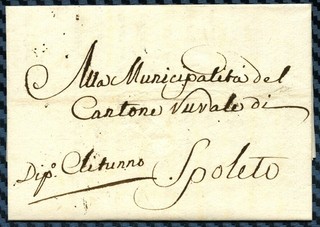 Alla Municipalità del
Cantone Rurale di
Dip.º Clitunno Spoleto